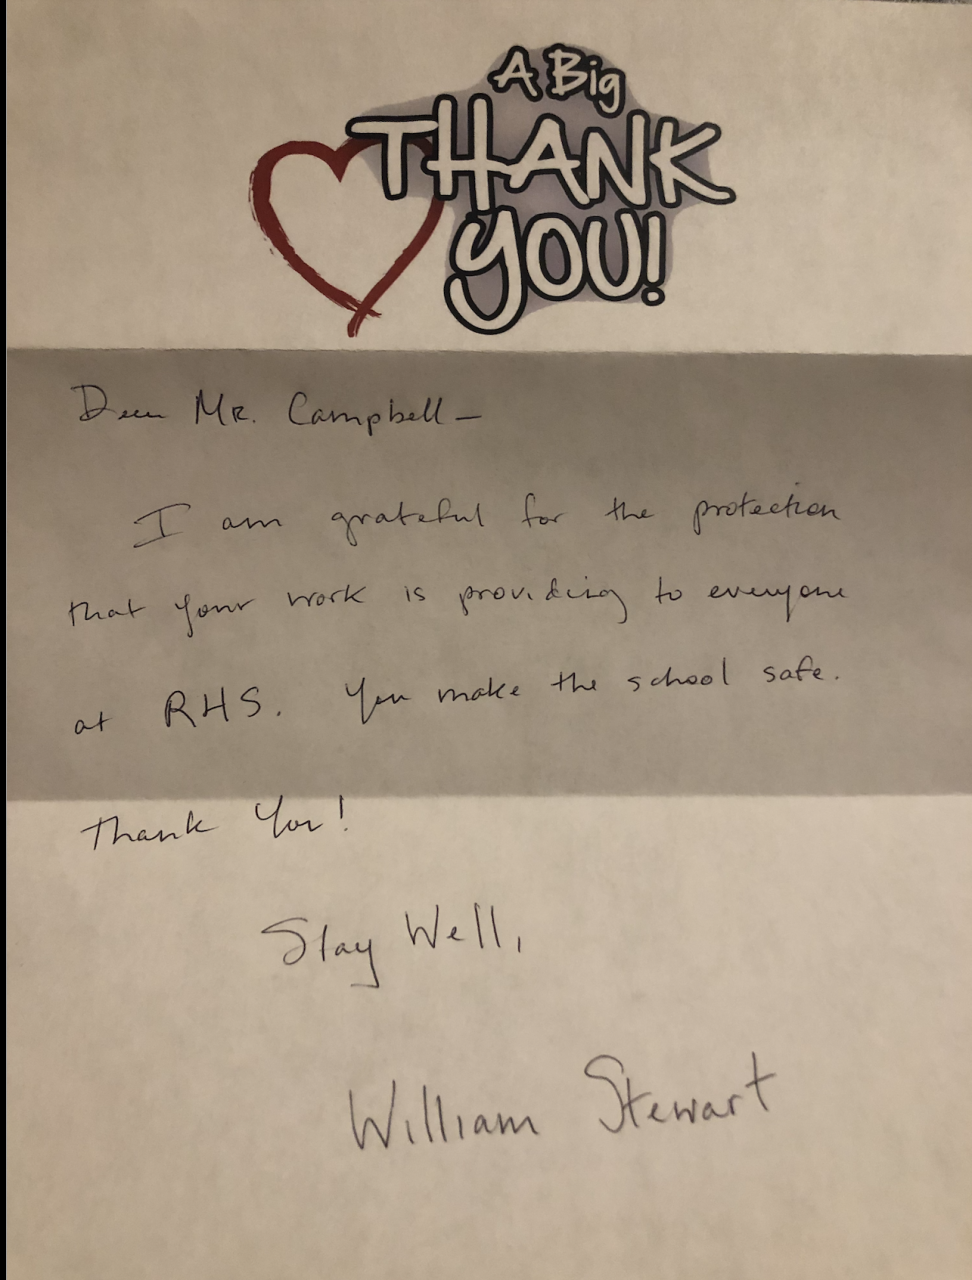 A Big
THANK
YOU!
Dear Mr. Campbell –
I am grateful for the protection
that your work is providing to everyone
at RHS. You make the school safe.
Thank You!
Stay Well,
William Stewart